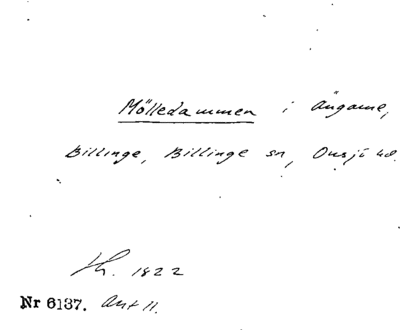 Mölledammen i Ängarne,
Billinge, Billinge sn, Onsjö hd.
1822
Nr 6137. Ant 11.